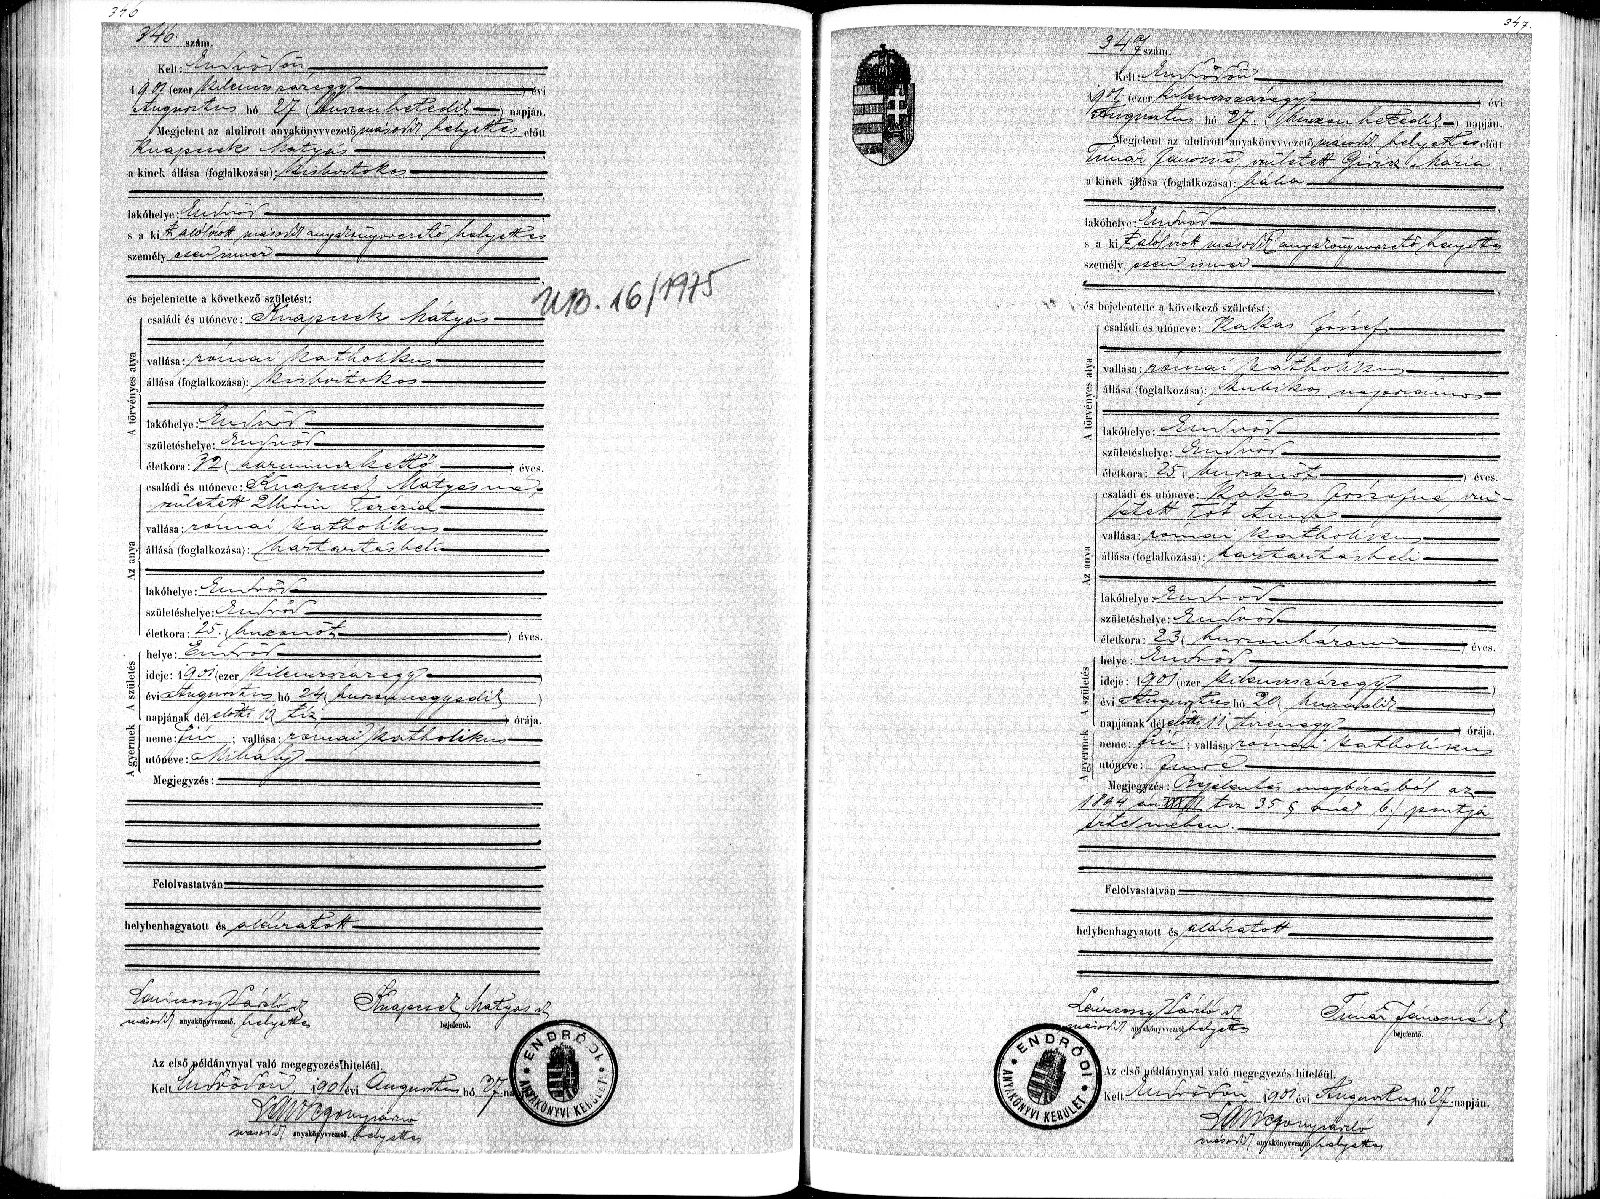 346
346. szám.
Kelt: Endrődön,
1901 (ezer kilenczszázegy) évi
Augusztus hó 27 (huszonhetedik) napján.
Megjelent az alulirott anyakönyvvezető második helyettes előtt
Knapcsek Mátyás
a kinek állása (foglalkozása): kisbirtokos
lakóhelye: Endrőd
s a kit alólirott második anyakönyvvezető helyettes
személyesen ismer
és bejelentette a következő születést:
A törvényes atya
családi és utóneve: Knapcsek Mátyás
vallása: római katholikus
állása (foglalkozása): kisbirtokos
lakóhelye: Endrőd
születéshelye: Endrőd
életkora: 32 (harminczkettő) éves.
Az anya
családi és utóneve: Knapcsek Mátyásné,
született Terézia
vallása: római katholikus
állása (foglalkozása): háztartásbeli
lakóhelye: Endrőd
születéshelye: Endrőd
életkora: 25 (huszonöt) éves.
A születés
helye: Endrőd
ideje: 1901 (ezer kilenczszázegy)
évi Augusztus hó 24 (huszonnegyedik)
napjának délelőtti 10 tíz órája.
A gyermek
neme: fiú; vallása: római katholikus
utóneve: Mihály
Megjegyzés:
Felolvastatván
helybenhagyatott és aláiratott
Knapcsek Mátyás
második anyakönyvvezető helyettes
bejelentő.
Az első példánynyal való megegyezés hiteléül.
Kelt Endrődön, 1901 évi Augusztus hó 27 napján
második anyakönyvvezető helyettes
ENDRŐDI
ANYAKÖNYVI KERÜLET
16/1975
347.
347 szám.
Kelt: Endrődön
1901 (ezer kilenczszázegy) évi
Augusztus hó 27. (huszonhetedik) napján.
Megjelent az alulirott anyakönyvvezető második helyettes előtt
Timár Jánosné, született Mária
a kinek állása (foglalkozása): bába
lakóhelye: Endrőd
s a kit alólirott második anyakönyvvezető helyettes
személyesen ismer
és bejelentette a következő születést:
A törvényes atya
családi és utóneve: Kakas József
vallása: római katholikus
állása (foglalkozása): kubikos napszámos
lakóhelye: Endrőd
születéshelye: Endrőd
életkora: 25 (huszonöt) éves.
Az anya
családi és utóneve: Kakas Józsefné, szü-
letett Tót Anna
vallása: római katholikus
állása (foglalkozása): háztartásbeli
lakóhelye: Endrőd
születéshelye: Endrőd
életkora: 23 (huszonhárom) éves.
A születés
helye: Endrőd
ideje: 1901 (ezer kilenczszázegy)
évi Augusztus hó 20 (huszadik)
napjának délelőtti 11 tizenegy órája.
A gyermek
neme: fiú; vallása: római katholikus
utóneve: Imre
Megjegyzés: Bejelentés megbízásból az
1894 évi t.cz 35 § b/ pontja
értelmében.
Felolvastatván
helybenhagyatott és aláiratott
Timár Jánosné
második anyakönyvvezető helyettes
bejelentő.
Az első példánynyal való megegyezés hiteléül.
Kelt Endrődön, 1901 évi Augusztus hó 27 napján.
második anyakönyvvezető helyettes
ENDRŐDI
ANYAKÖNYVI KERÜLET